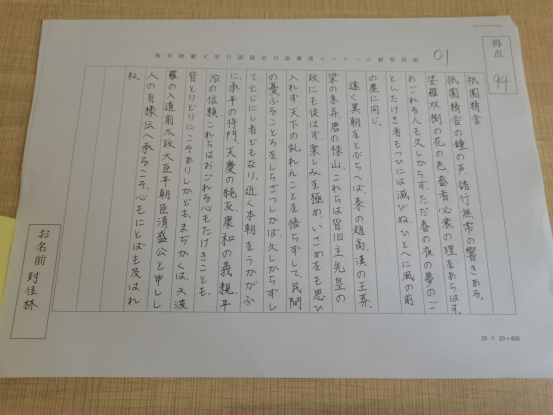 得点
94
01
祇園精舎
祇園精舎の鐘の声、諸行無常の響きある。
娑羅双樹の花の色、盛者必衰の理をあらはす。
おごれる人も久しからず、ただ春の夜の夢のご
とし、たけき者もつひには滅びぬ、ひとへに風の前
の塵に同じ。
遠く異朝をとぶらへば、秦の趙高、漢の王莽、
梁の朱异、唐の禄山、これらは皆旧主先皇の
政にも従はず、楽しみを極め、いさめをも思ひ
入れず、天下の乱れんことを悟らずして、民間
の憂ふるところをしらざつしかば、久しからずし
て、亡じにし者どもなり、近く本朝をうかがふ
に、承平の将門、天慶の純友、康和の義親、平
治の信頼、これらはおごれる心もたけきことも、
皆とりどりにこそありしかども、まぢかくは、六波
羅の入道前太政大臣平朝臣清盛公と申しし
人の有様、伝へ承るこそ、心もことばも及ばれ
ね。
お名前 封佳林
20 × 20=400